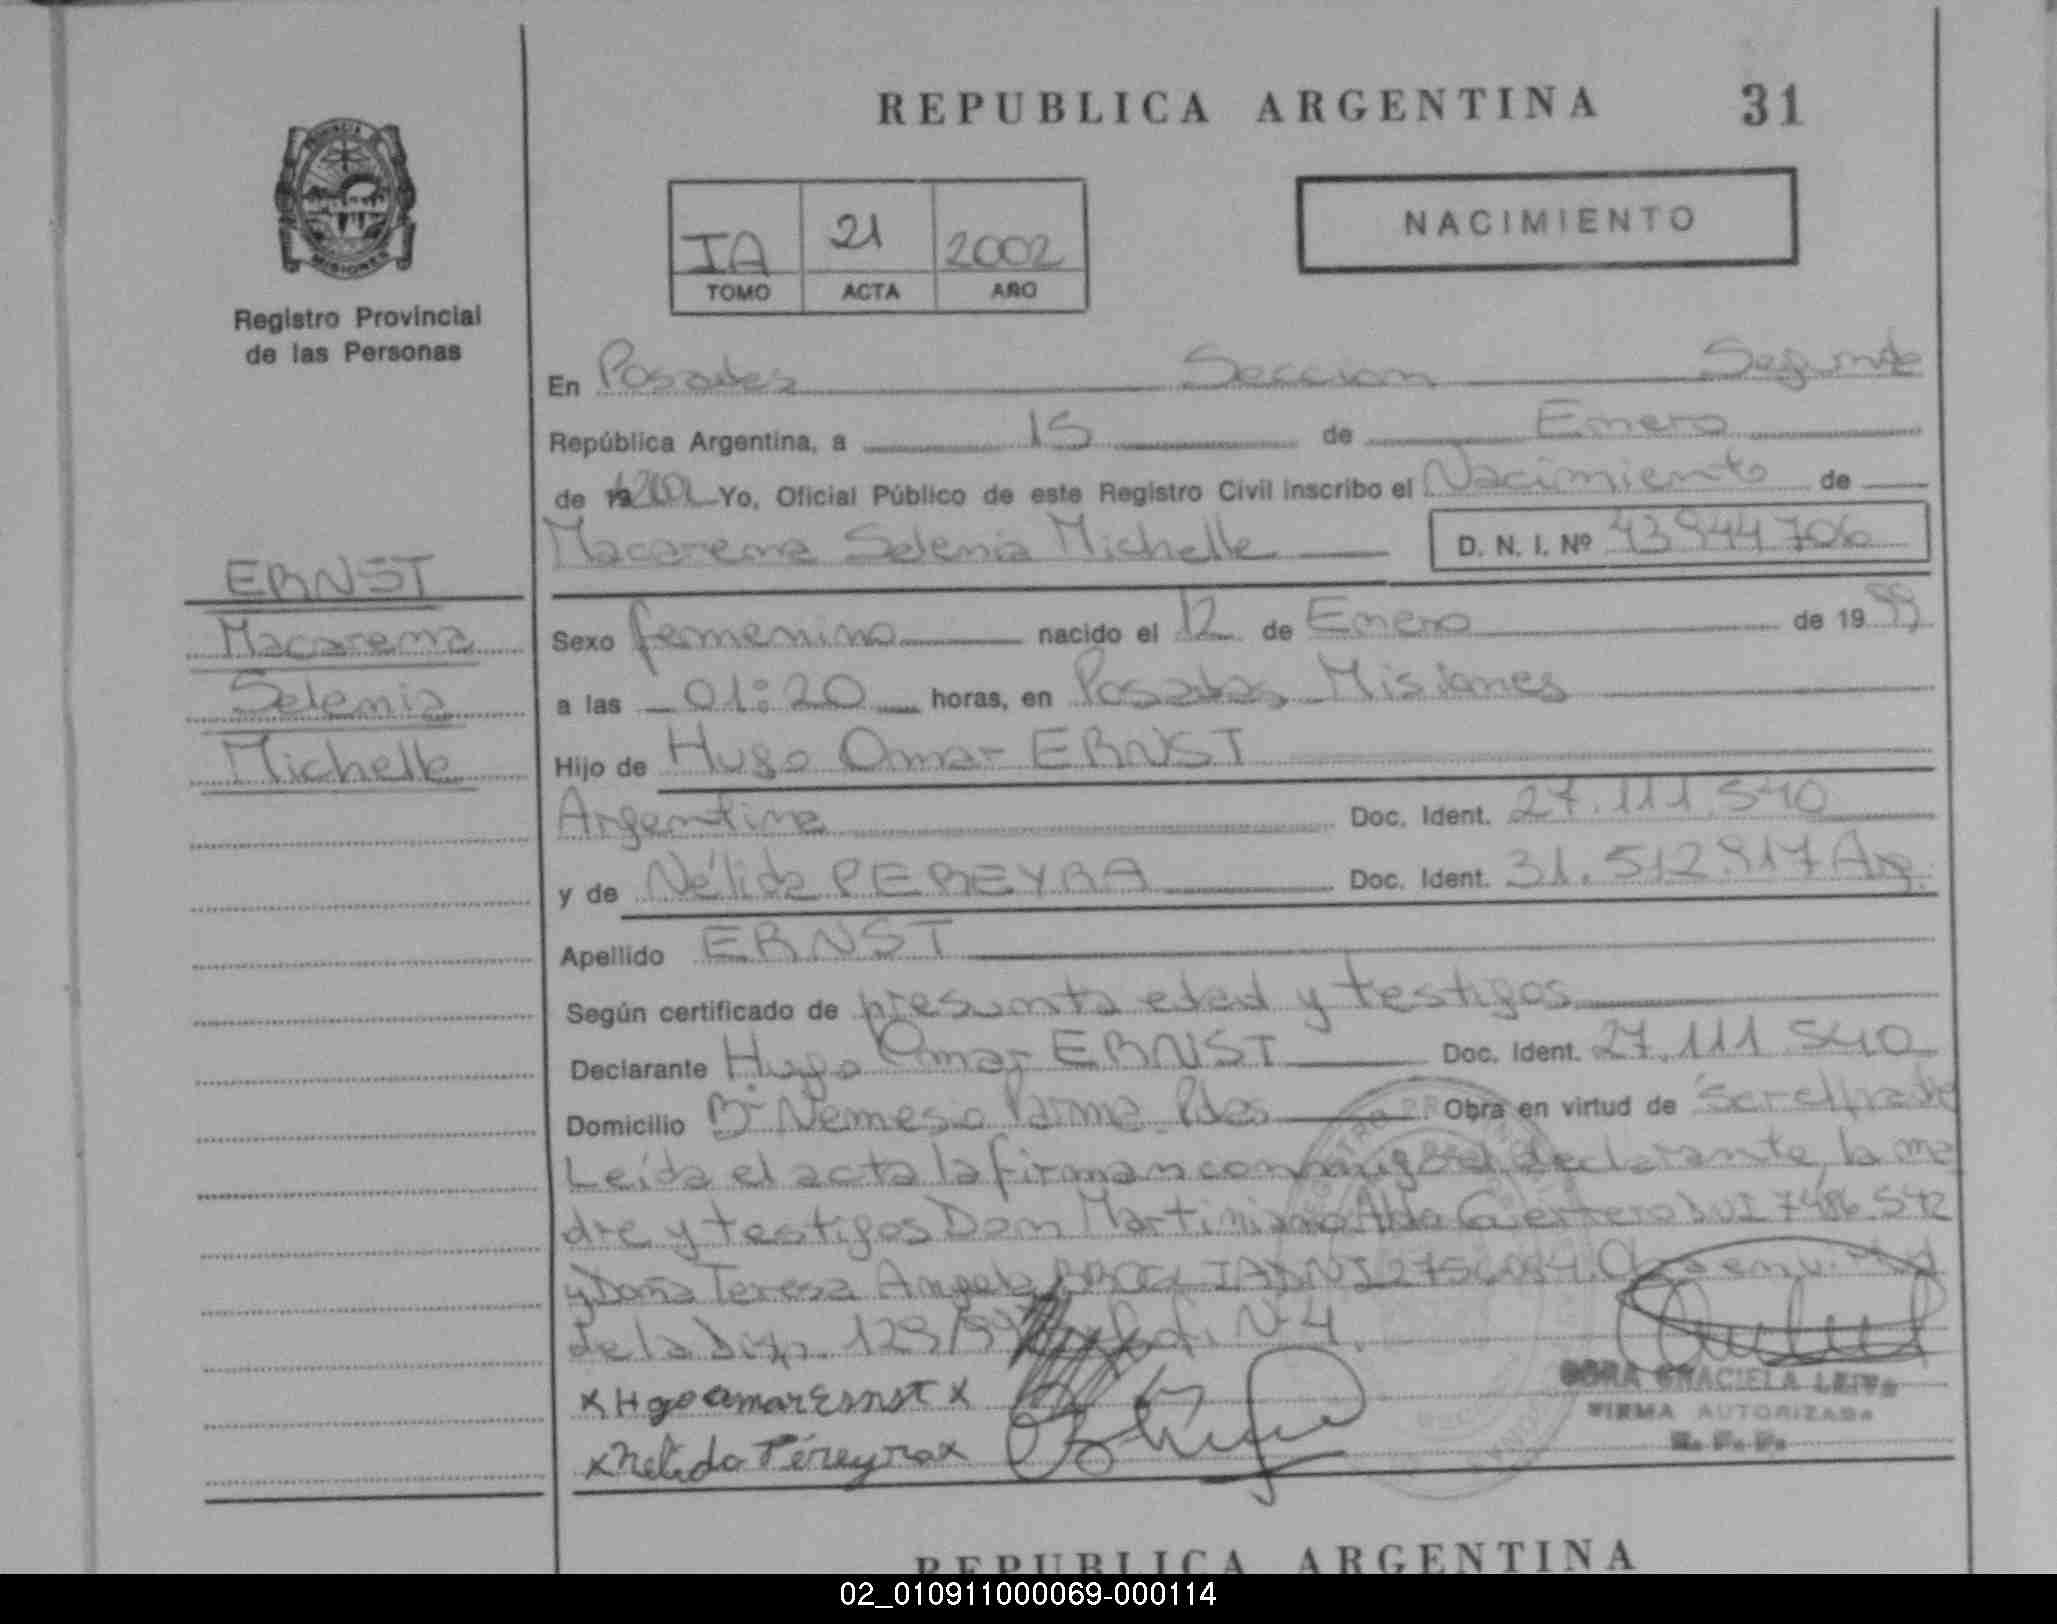 REPUBLICA ARGENTINA 31
PROVINCIA
MISIONES
Registro Provincial
de las Personas
IA 21 2002
TOMO ACTA AÑO
NACIMIENTO
En Posadas Seccion Segunda
República Argentina, a 15 de Enero
de 19 2002 Yo, Oficial Público de este Registro Civil inscribo el Nacimiento de
Macarena Selenia Michelle D. N. I. Nº 43944706
ERNST
Macarena
Selenia
Michelle
Sexo femenino nacido el 12 de Enero de 1999
a las 01:20 horas, en Posadas, Misiones
Hijo de Hugo Omar ERNST
Argentina Doc. Ident. 27.111.540
y de Nélida PEREYRA Doc. Ident. 31.512.917 Arg.
Apellido ERNST
Según certificado de presunta edad y testigos
Declarante Hugo Omar ERNST Doc. Ident. 27.111.540
Domicilio Bº Nemesio Parma. Pdas Obra en virtud de
Leída el acta la firman conmigo el declarante, la ma
dre y testigos Don Martiniano Aldo Guerrero DNI 7486.542
y Doña Teresa Angela DNI
de la Disp. 129/99 Nº 4.
x Hgo omar Ernst x
x nelida Péreyra x
GRACIELA LEIVA
FIRMA AUTORIZADA
R. P. P.
REPUBLICA ARGENTINA
02_010911000069-000114